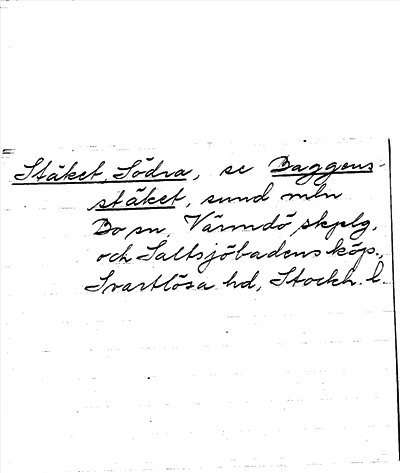 Stäket, Södra, se Baggens-
stäket, sund mln
Bo sn, Värmdö skplg,
och Saltsjöbadens köp.,
Svartlösa hd, Stockh. l.